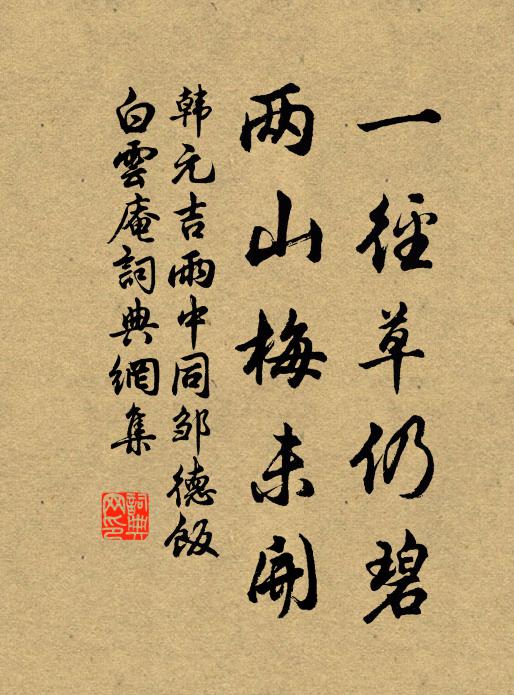 一徑草仍碧
两山梅未開
韩元吉雨中同邹德飯
白雲庵詞典網集
詞典网印